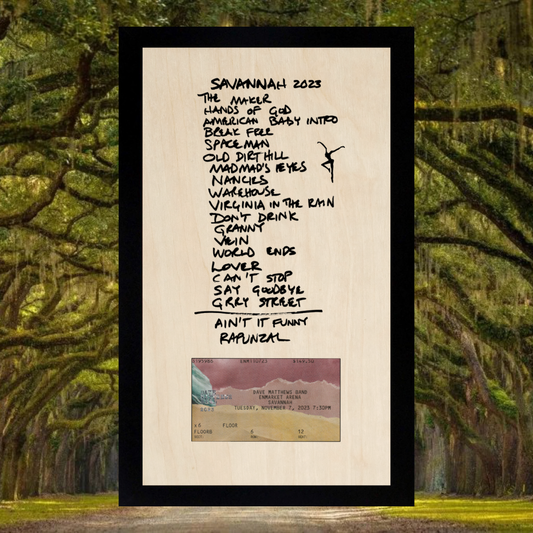 SAVANNAH 2023
THE MAKER
HANDS OF GOD
AMERICAN BABY INTRO
BREAK FREE
SPACEMAN
OLD DIRT HILL
MADMAD'S EYES
NANCIES
WAREHOUSE
VIRGINIA IN THE RAIN
DON'T DRINK
GRANNY
VEIN
WORLD ENDS
LOVER
CAN'T STOP
SAY GOODBYE
GREY STREET
AIN'T IT FUNNY
RAPUNZAL
DAVE MATTHEWS BAND
ENMARKET ARENA
SAVANNAH
TUESDAY, NOVEMBER 7, 2023 7:30PM
FLOOR
6
12